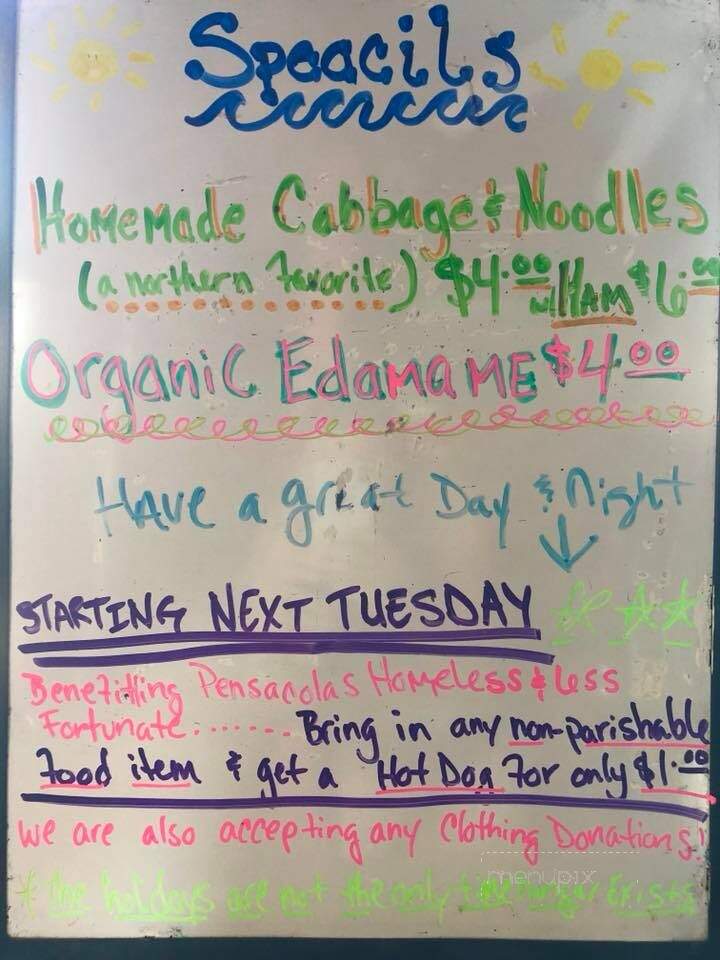 Speacils
Homemade Cabbage & Noodles
(a northern favorite) $4.00 w/ HAM $6.00
Organic EdamaME $4.00
Have a great Day & Night
STARTING NEXT TUESDAY
Benefitting Pensacolas Homeless & Less
Fortunate....... Bring in any non-parishable
Food item & get a Hot Dog For only $1.00
we are also accepting any Clothing Donations!
* The holidays are not the only time hunger Exists
menupix